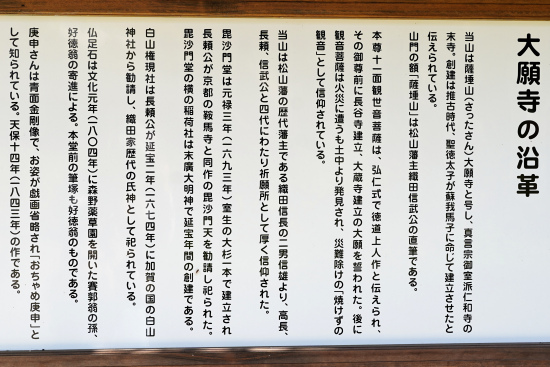 大願寺の沿革
当山は薩埵山（さったさん）大願寺と号し、真言宗御室派仁和寺の
末寺。創建は推古時代、聖徳太子が蘇我馬子に命じて建立させたと
伝えられている。
山門の額「薩埵山」は松山藩主織田信武公の直筆である。
本尊十一面観世音菩薩は、弘仁式で徳道上人作と伝えられ、
その御尊前に長谷寺建立、大蔵寺建立の大願を誓われた。後に
観音菩薩は火災に遭うも土中より発見され、災難除けの「焼けずの
観音」として信仰されている。
当山は松山藩の歴代藩主である織田信長の二男信雄より、高長、
長頼、信武公と四代にわたり祈願所として厚く信仰された。
毘沙門堂は元禄三年（一六九三年）室生の大杉一本で建立され
長頼公が京都の鞍馬寺と同作の毘沙門天を勧請し祀られた。
毘沙門堂の横の稲荷社は末廣大明神で延宝年間の創建である。
白山権現社は長頼公が延宝二年（一六七四年）に加賀の国の白山
神社から勧請し、織田家歴代の氏神として祀られている。
仏足石は文化元年（一八〇四年）に森野薬草園を開いた賽郭翁の孫、
好徳翁の寄進による。本堂前の筆塚も好徳翁のものである。
庚申さんは青面金剛像で、お姿が戯画省略され「おちゃめ庚申」と
して知られている。天保十四年（一八四三年）の作である。